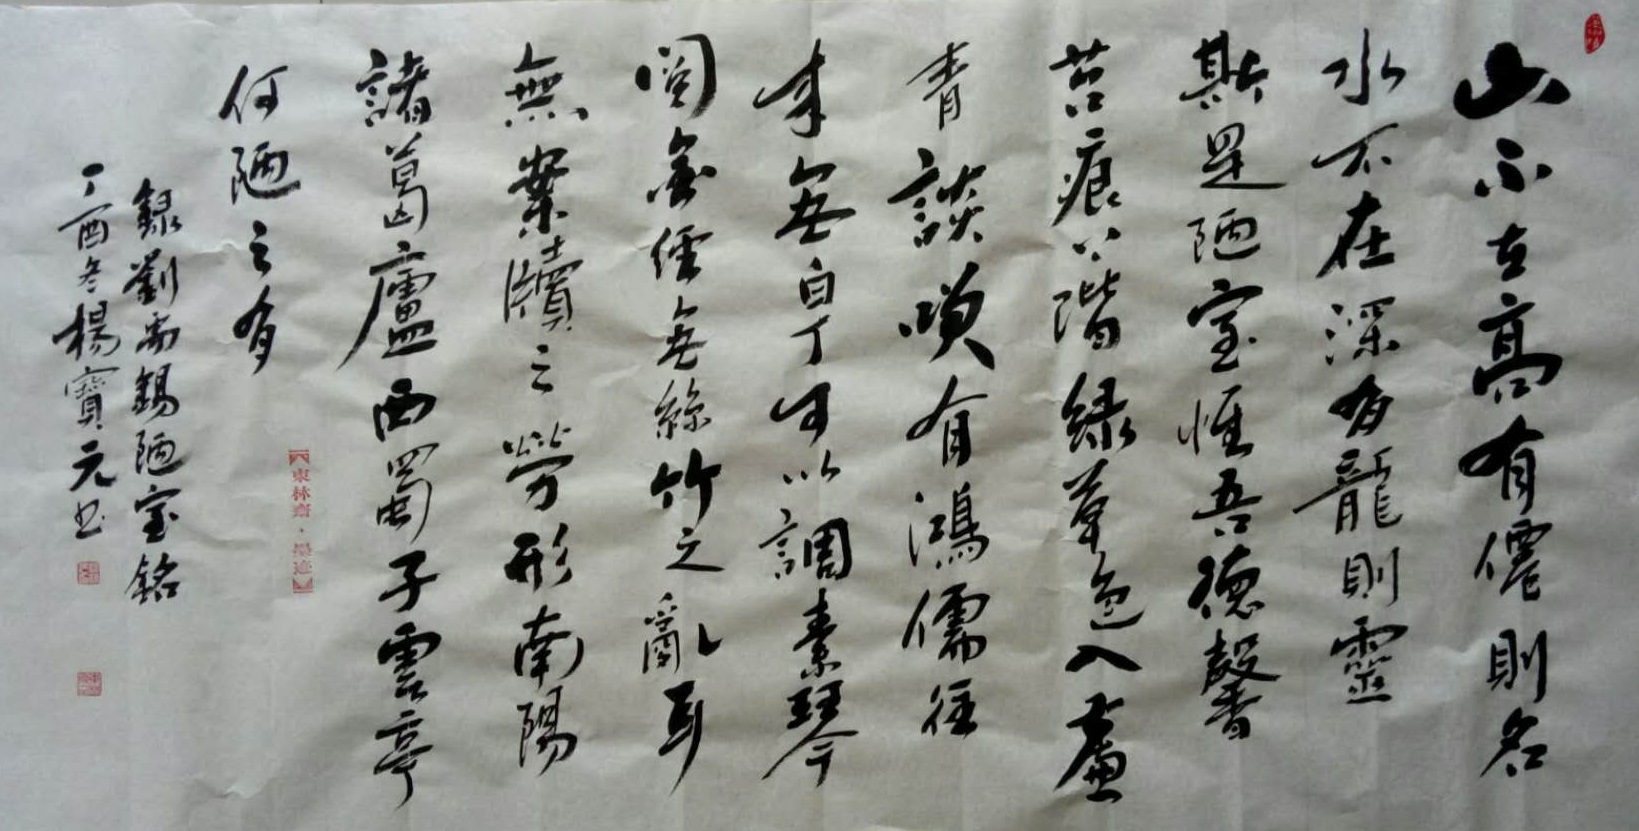 山不在高有僊則名
水不在深有龍則靈
斯是陋室惟吾德馨
苔痕上階綠草色入簾
青談咲有鴻儒往
来無白丁可以調素琴
閱金經無絲竹之亂耳
無案牘之勞形南陽
諸葛廬西蜀子雲亭
何陋之有
【東林齋·墨迹】
錄劉禹錫陋室銘
丁酉冬楊寶元书